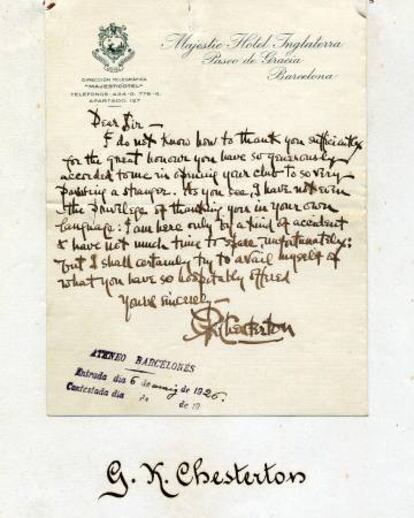 Majestic Hotel Inglaterra
Paseo de Gracia
Barcelona
DIRECCIÓN TELEGRÁFICA
"MAJESTICOTEL"
TELÉFONOS: 434-G. 776-G.
APARTADO, 127
Dear Sir –
I do not know how to thank you sufficiently
for the great honour you have so generously
accorded to me in opening your club to so very
passing a stranger. As you see, I have not even
the privilege of thanking you in your own
language: I am here only by a kind of accident
& have not much time to spare, unfortunately;
but I shall certainly try to avail myself of
what you have so hospitably offered
Yours sincerely –
GK Chesterton
ATENEO BARCELONÉS
Entrada día 6 de maig de 1926.
Contestada día de de 19
G. K. Chesterton